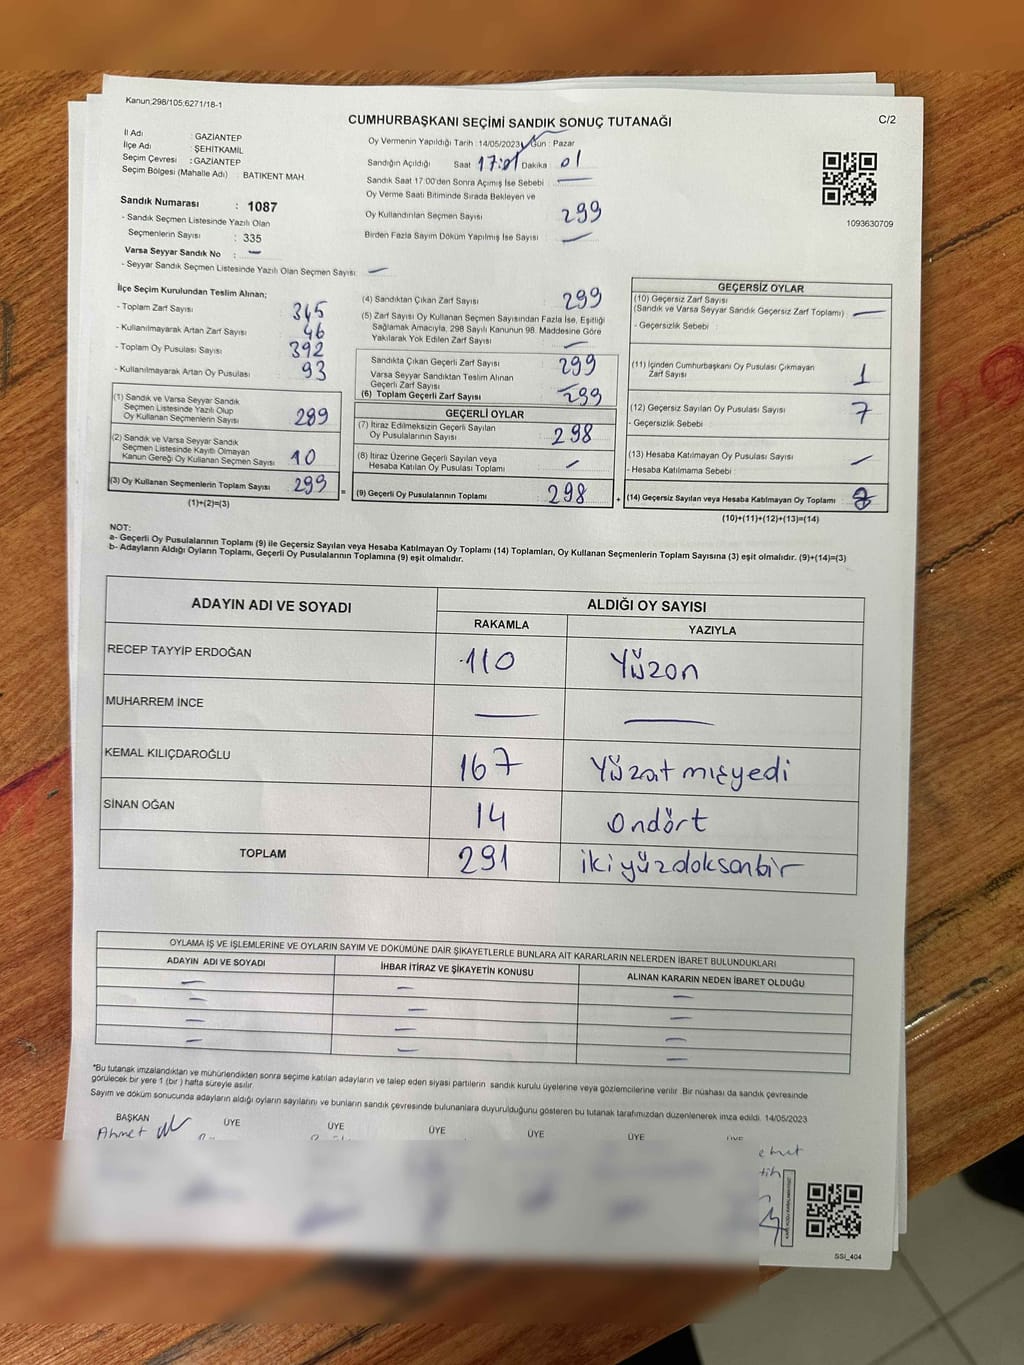 Kanun;298/105;6271/18-1
CUMHURBAŞKANI SEÇİMİ SANDIK SONUÇ TUTANAĞI
C/2
İl Adı : GAZİANTEP
İlçe Adı : ŞEHİTKAMİL
Seçim Çevresi : GAZİANTEP
Seçim Bölgesi (Mahalle Adı) : BATIKENT MAH.
Oy Vermenin Yapıldığı Tarih : 14/05/2023 Gün : Pazar
Sandığın Açıldığı Saat 17:01 Dakika 01
Sandık Saat 17:00'den Sonra Açımış İse Sebebi : —
Oy Verme Saati Bitiminde Sırada Bekleyen ve
Oy Kullandırılan Seçmen Sayısı 299
Birden Fazla Sayım Döküm Yapılmış İse Sayısı : —
1093630709
Sandık Numarası : 1087
- Sandık Seçmen Listesinde Yazılı Olan
Seçmenlerin Sayısı : 335
Varsa Seyyar Sandık No : —
- Seyyar Sandık Seçmen Listesinde Yazılı Olan Seçmen Sayısı: —
İlçe Seçim Kurulundan Teslim Alınan;
- Toplam Zarf Sayısı 345
- Kullanılmayarak Artan Zarf Sayısı 46
- Toplam Oy Pusulası Sayısı 392
- Kullanılmayarak Artan Oy Pusulası 93
(1) Sandık ve Varsa Seyyar Sandık
Seçmen Listesinde Yazılı Olup
Oy Kullanan Seçmenlerin Sayısı 289
(2) Sandık ve Varsa Seyyar Sandık
Seçmen Listesinde Kayıtlı Olmayan
Kanun Gereği Oy Kullanan Seçmen Sayısı 10
(3) Oy Kullanan Seçmenlerin Toplam Sayısı 299
(1)+(2)=(3)
(4) Sandıktan Çıkan Zarf Sayısı 299
(5) Zarf Sayısı Oy Kullanan Seçmen Sayısından Fazla İse, Eşitliği
Sağlamak Amacıyla, 298 Sayılı Kanunun 98. Maddesine Göre
Yakılarak Yok Edilen Zarf Sayısı —
Sandıkta Çıkan Geçerli Zarf Sayısı 299
Varsa Seyyar Sandıktan Teslim Alınan
Geçerli Zarf Sayısı —
(6) Toplam Geçerli Zarf Sayısı 299
GEÇERLİ OYLAR
(7) İtiraz Edilmeksizin Geçerli Sayılan
Oy Pusulalarının Sayısı 298
(8) İtiraz Üzerine Geçerli Sayılan veya
Hesaba Katılan Oy Pusulası Toplamı —
= (9) Geçerli Oy Pusulalarının Toplamı 298
GEÇERSİZ OYLAR
(10) Geçersiz Zarf Sayısı
(Sandık ve Varsa Seyyar Sandık Geçersiz Zarf Toplamı) —
- Geçersizlik Sebebi :
(11) İçinden Cumhurbaşkanı Oy Pusulası Çıkmayan
Zarf Sayısı 1
(12) Geçersiz Sayılan Oy Pusulası Sayısı 7
- Geçersizlik Sebebi :
(13) Hesaba Katılmayan Oy Pusulası Sayısı —
- Hesaba Katılmama Sebebi :
+ (14) Geçersiz Sayılan veya Hesaba Katılmayan Oy Toplamı 8
(10)+(11)+(12)+(13)=(14)
NOT:
a- Geçerli Oy Pusulalarının Toplamı (9) ile Geçersiz Sayılan veya Hesaba Katılmayan Oy Toplamı (14) Toplamları, Oy Kullanan Seçmenlerin Toplam Sayısına (3) eşit olmalıdır. (9)+(14)=(3)
b- Adayların Aldığı Oyların Toplamı, Geçerli Oy Pusulalarının Toplamına (9) eşit olmalıdır.
ADAYIN ADI VE SOYADI ALDIĞI OY SAYISI
RAKAMLA YAZIYLA
RECEP TAYYİP ERDOĞAN 110 Yüzon
MUHARREM İNCE — —
KEMAL KILIÇDAROĞLU 167 Yüzatmışyedi
SİNAN OĞAN 14 Ondört
TOPLAM 291 ikiyüzdoksanbir
OYLAMA İŞ VE İŞLEMLERİNE VE OYLARIN SAYIM VE DÖKÜMÜNE DAİR ŞİKAYETLERLE BUNLARA AİT KARARLARIN NELERDEN İBARET BULUNDUKLARI
ADAYIN ADI VE SOYADI İHBAR İTİRAZ VE ŞİKAYETİN KONUSU ALINAN KARARIN NEDEN İBARET OLDUĞU
— — —
— — —
— — —
— — —
*Bu tutanak imzalandıktan ve mühürlendikten sonra seçime katılan adayların ve talep eden siyasi partilerin sandık kurulu üyelerine veya gözlemcilerine verilir. Bir nüshası da sandık çevresinde
görülecek bir yere 1 (bir) hafta süreyle asılır.
Sayım ve döküm sonucunda adayların aldığı oyların sayılarını ve bunların sandık çevresinde bulunanlara duyurulduğunu gösteren bu tutanak tarafımızdan düzenlenerek imza edildi. 14/05/2023
BAŞKAN ÜYE ÜYE ÜYE ÜYE ÜYE
Ahmet
SSİ_404